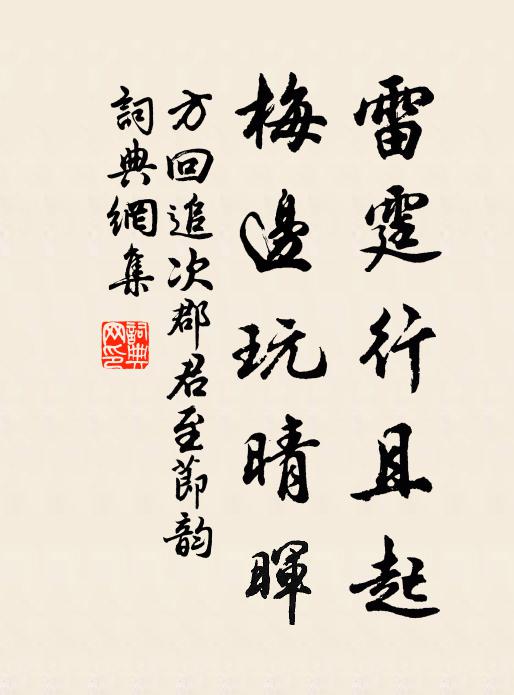 雷霆行且起
梅邊玩晴暉
方回追次郡君至節韵
詞典網集
詞典网印